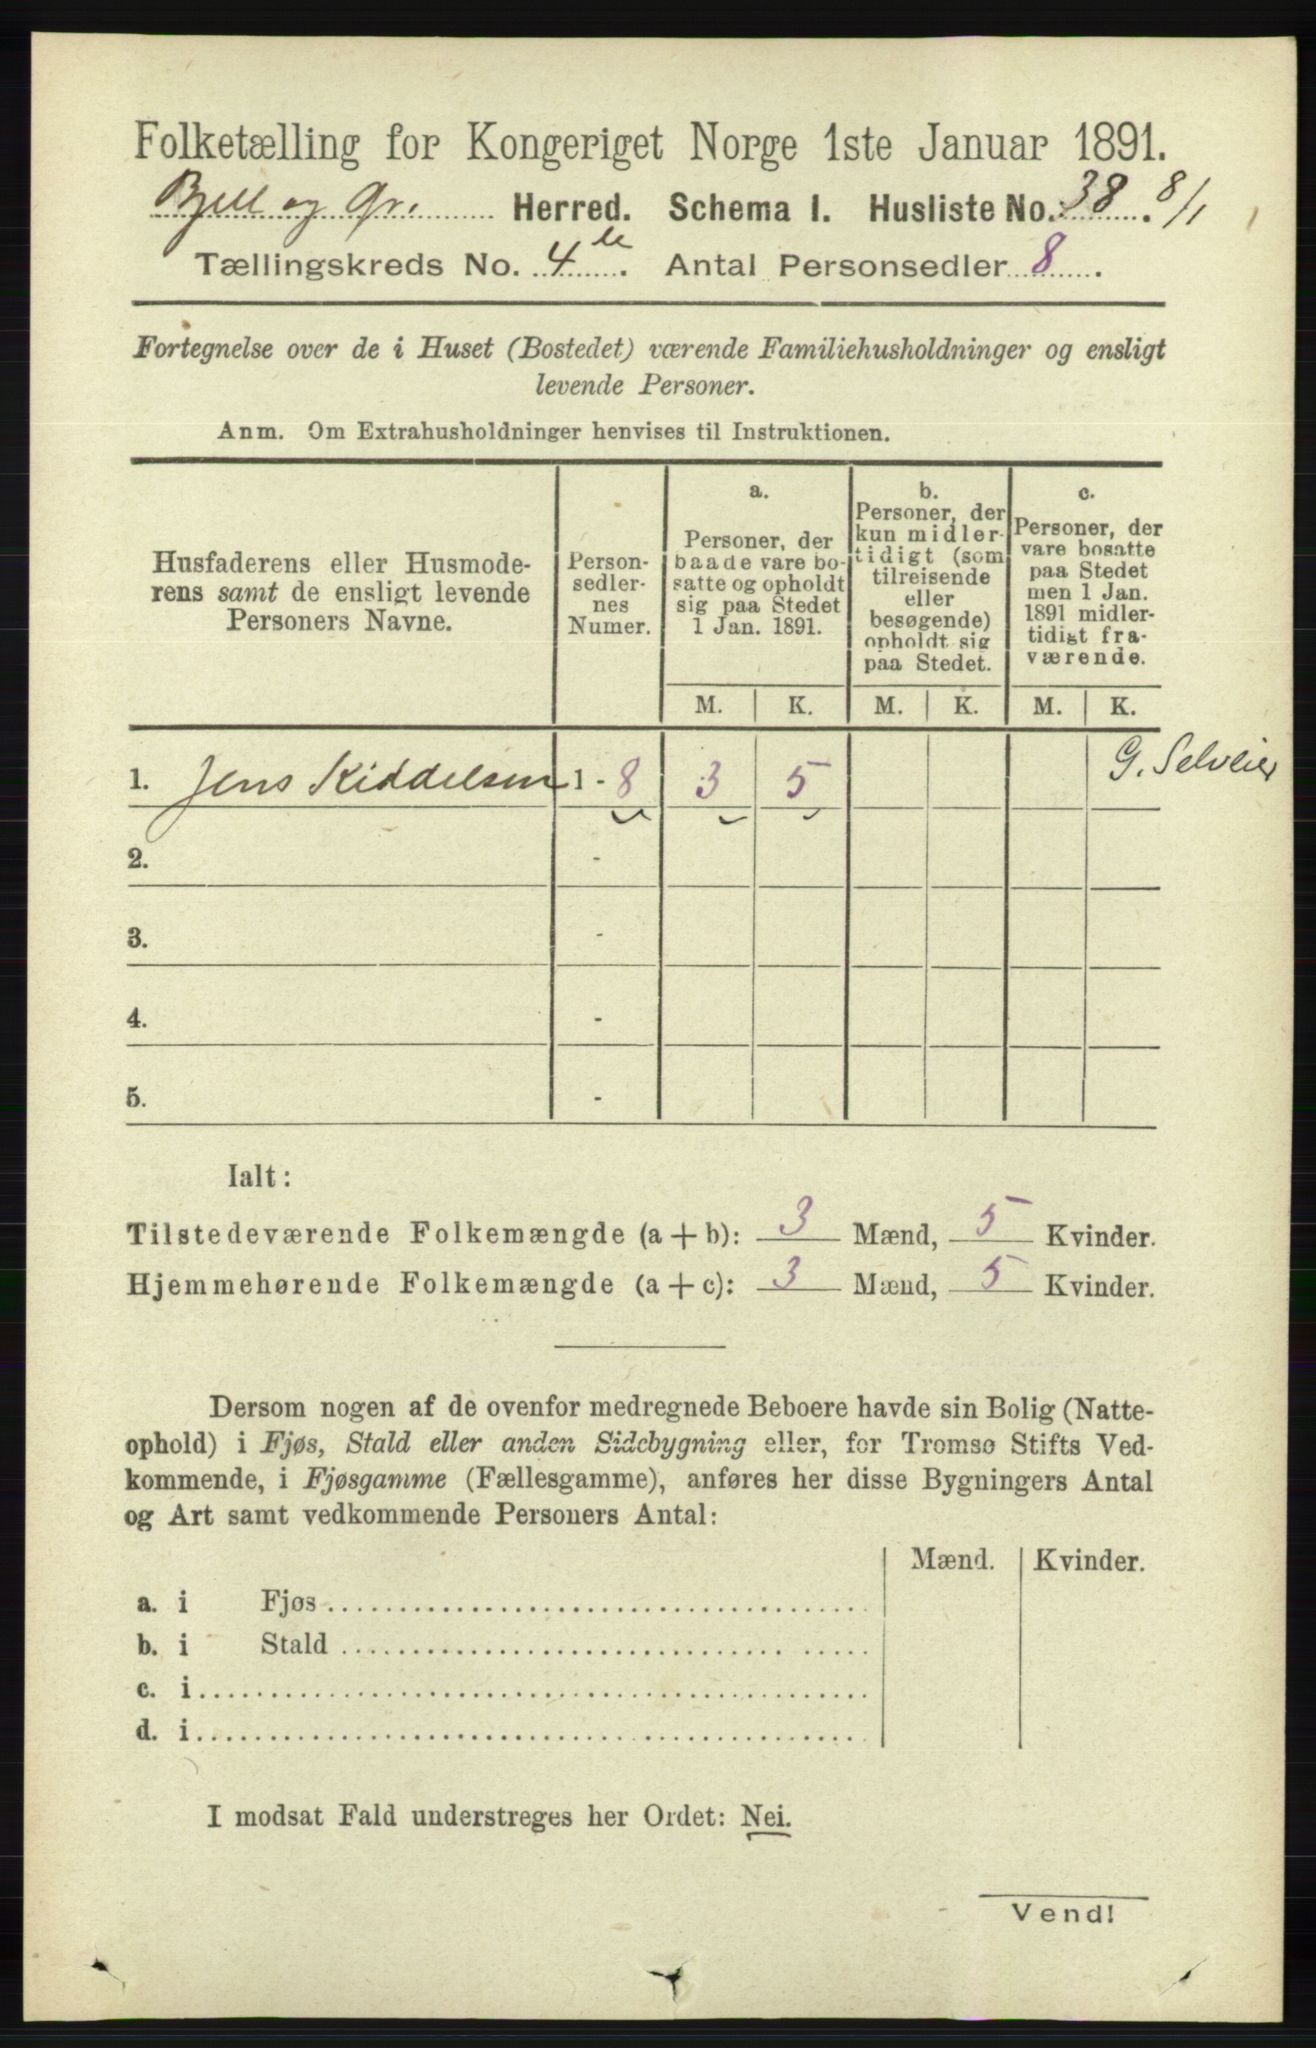 Folketælling for Kongeriget Norge 1ste Januar 1891.
Bjell og Gr. Herred. Schema I. Husliste No. 38. 8/1
Tællingskreds No. 4de. Antal Personsedler 8.
Fortegnelse over de i Huset (Bostedet) værende Familiehusholdninger og ensligt
levende Personer.
Anm. Om Extrahusholdninger henvises til Instruktionen.
Husfaderens eller Husmode-
rens samt de ensligt levende
Personers Navne.
Person-
sedler-
nes
Numer.
a.
Personer, der
baade vare bo-
satte og opholdt
sig paa Stedet
1 Jan. 1891.
b.
Personer, der
kun midler-
tidigt (som
tilreisende
eller
besøgende)
opholdt sig
paa Stedet.
c.
Personer, der
vare bosatte
paa Stedet
men 1 Jan.
1891 midler-
tidigt fra-
værende.
M. K. M. K. M. K.
1. Jens Kiddelsen 1 - 8 3 5 G. Selveier
2. -
3. -
4. -
5. -
Ialt:
Tilstedeværende Folkemængde (a + b): 3 Mænd, 5 Kvinder.
Hjemmehørende Folkemængde (a + c): 3 Mænd, 5 Kvinder.
Dersom nogen af de ovenfor medregnede Beboere havde sin Bolig (Natte-
ophold) i Fjøs, Stald eller anden Sidebygning eller, for Tromsø Stifts Ved-
kommende, i Fjøsgamme (Fællesgamme), anføres her disse Bygningers Antal
og Art samt vedkommende Personers Antal:
Mænd. Kvinder.
a. i Fjøs
b. i Stald
c. i
d. i
I modsat Fald understreges her Ordet: Nei.
Vend!